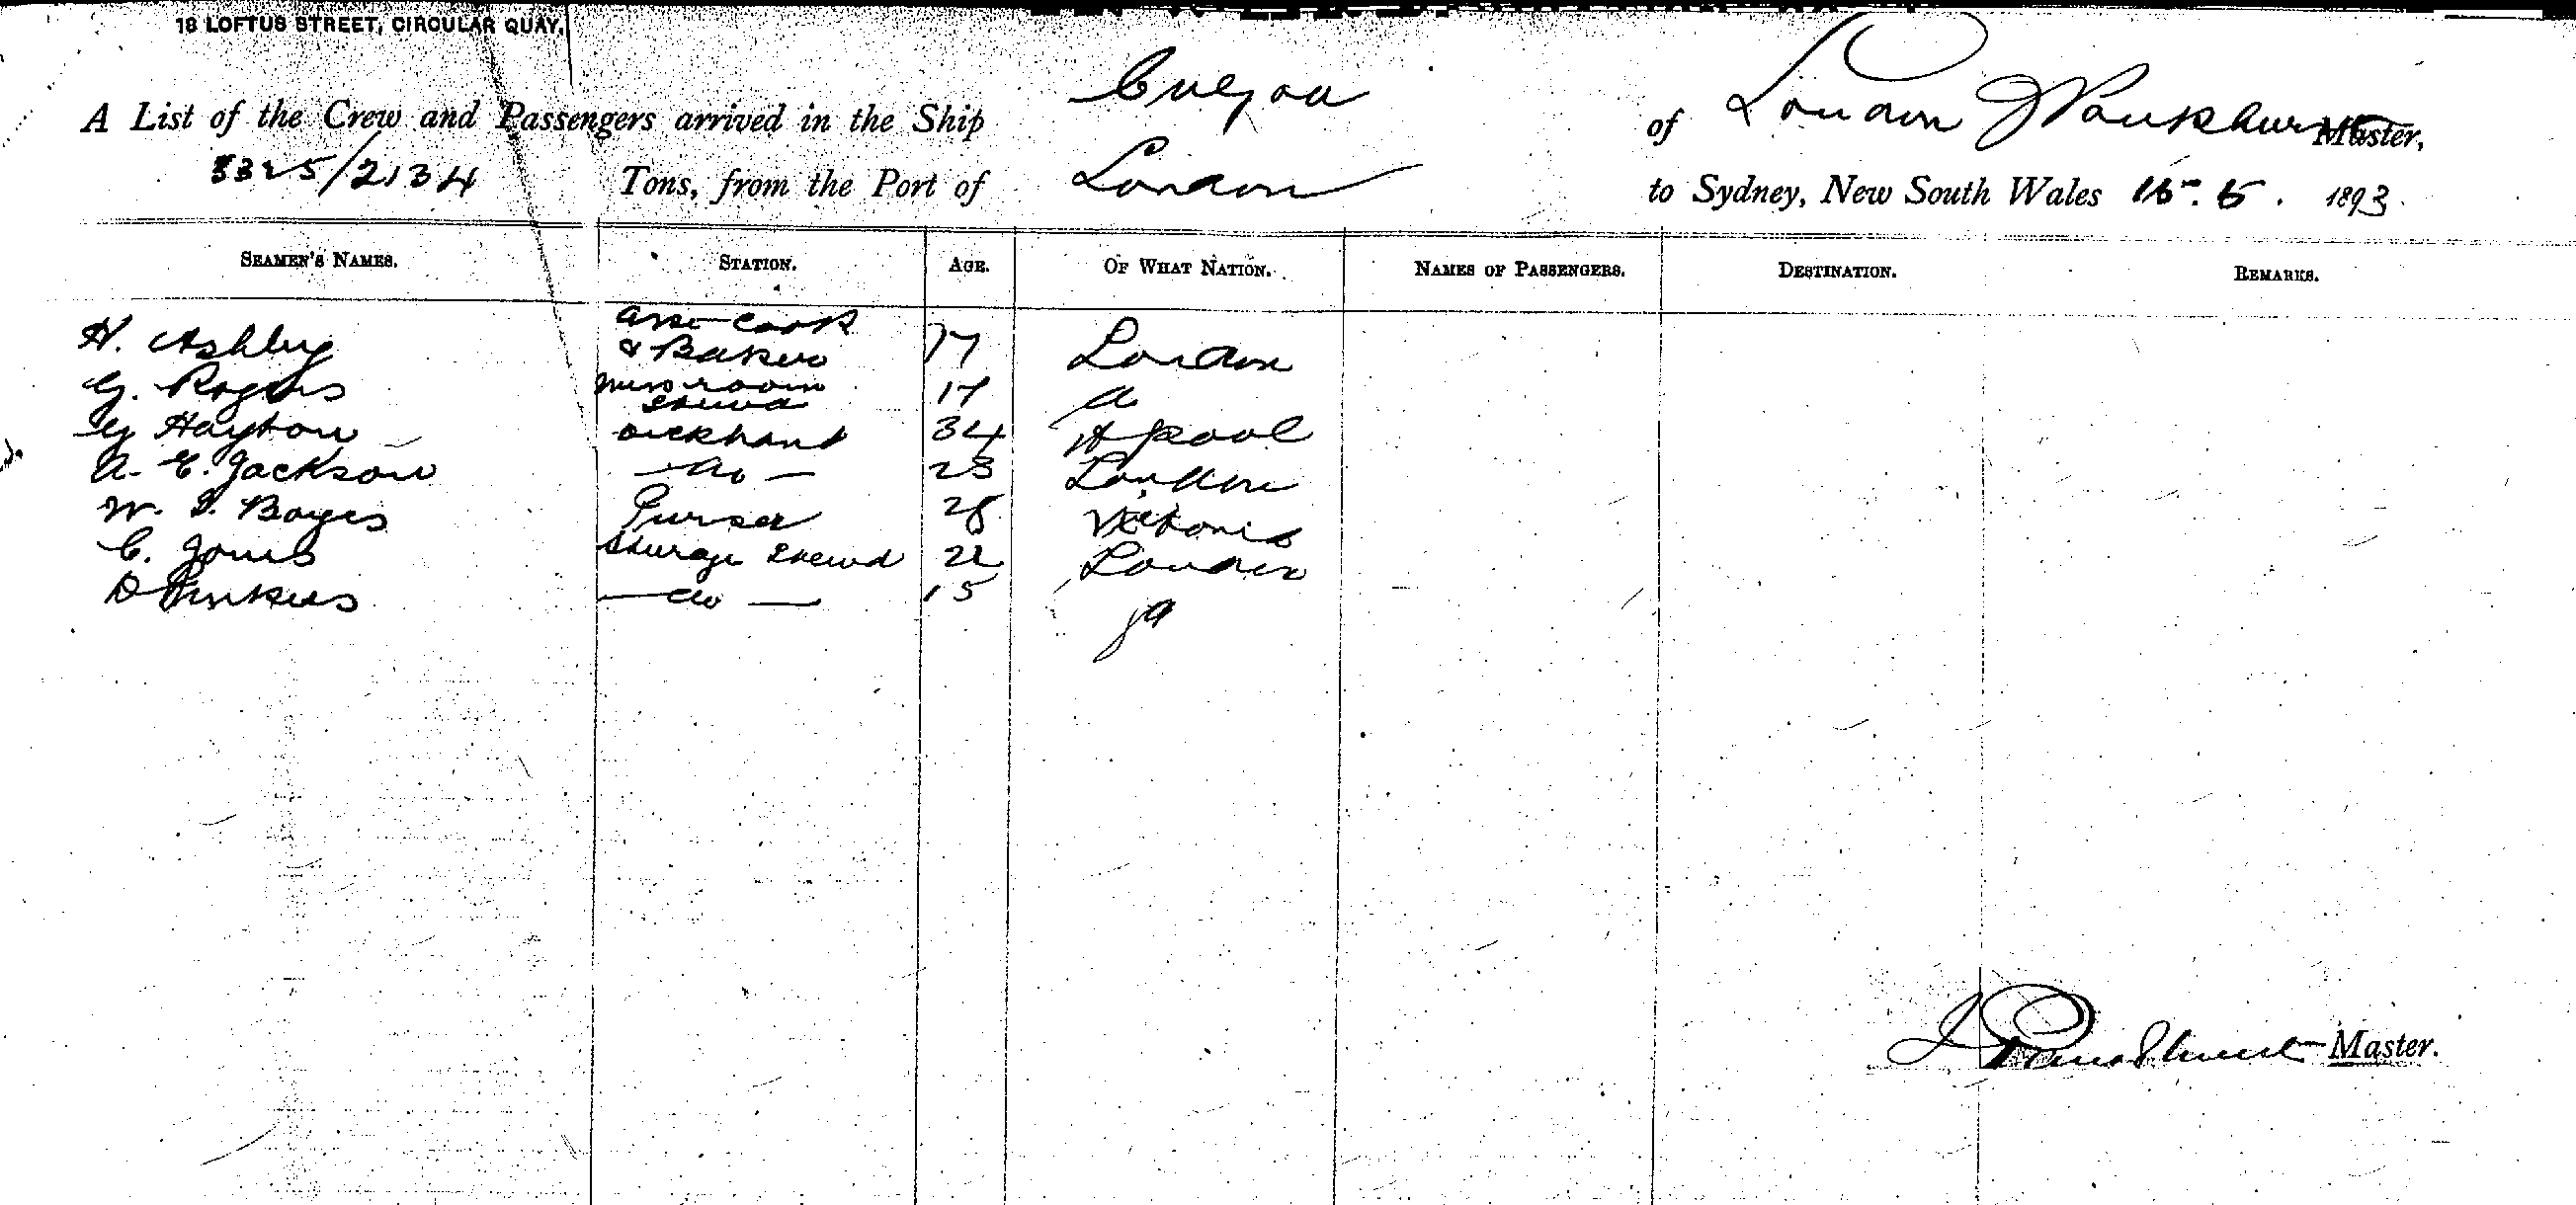 18 LOFTUS STREET, CIRCULAR QUAY,
A List of the Crew and Passengers arrived in the Ship Culgoa of London J Pankhurst Master,
3325/2134 Tons, from the Port of London to Sydney, New South Wales 15. 5. 1893
SEAMEN'S NAMES. STATION. AGE. OF WHAT NATION. NAMES OF PASSENGERS. DESTINATION. REMARKS.
H. Ashby Asst Cook & Baker 17 London
G. Rogers Messroom Steward 17 do
G Hayton deckhand 34 Hpool
A. E. Jackson do 23 London
W. Boyes Purser 28 Victoria
C. Jones Steerage Steward 22 London
D do 15
J Pankhurst Master.